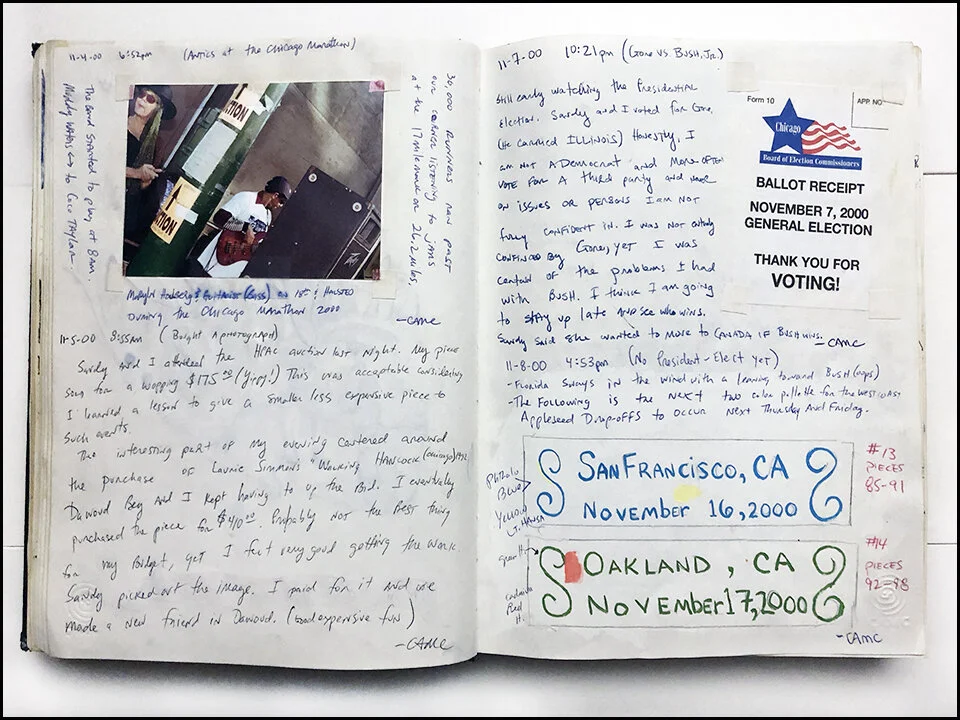 11-4-00 6:52pm (Antics at the Chicago Marathon)
The band started to play at 8am.
Muddy Waters <-> to Coco Taylor.
30,000 runners ran past
our corner listening to jams
at the 17 mile mark of 26.2 miles.
during the Chicago Marathon 2000
-CAMC
11-5-00 8:55AM (Bought A photograph)
Sandy and I attended the HPAC auction last night. My piece
for a wopping $175.00 (Yippy!) This was acceptable considering
I learned a lesson to give a smaller less expensive piece to
such events.
The interesting part of my evening centered around
the purchase of Laurie Simmons "Walking Hancock (Chicago)
Dawoud Bey and I kept having to up the Bid. I eventually
purchased the piece for $410.00. Probably not the best thing
for my Budget, yet I felt very good getting the work.
Sandy picked out the image. I paid for it and we
made a new friend in Dawoud. (Good expensive fun)
-CAMC
11-7-00 10:21pm (Gore vs. Bush, Jr.)
Still early watching the Presidential
Election. Sandy and I voted for Gore.
(He carried ILLINOIS) Honestly, I
am not A Democrat and More often
vote for A third party and
on issues or persons I am not
fully confident in. I was not entirely
by Gore, yet I was
certain of the problems I had
with Bush. I think I am going
to stay up late and see who wins.
Sandy said she wanted to move to CANADA if Bush wins.
-CAMC
Form 10
APP. NO
Chicago
Board of Election Commissioners
BALLOT RECEIPT
NOVEMBER 7, 2000
GENERAL ELECTION
THANK YOU FOR
VOTING!
11-8-00 4:53pm (No President-Elect yet)
-Florida sways in the wind with a leaning toward Bush (oops)
-The Following is the next two color pallette for the west coast
Appleseed Drop-offs to occur next Thursday And Friday.
Phthalo
Blue
Yellow
Hansa
San Francisco, CA
November 16, 2000
#13
PIECES
85-91
Red
Oakland, CA
November 17, 2000
#14
PIECES
92-98
-CAMC